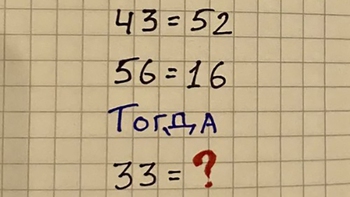 43 = 52
56 = 16
Тогда
33 = ?